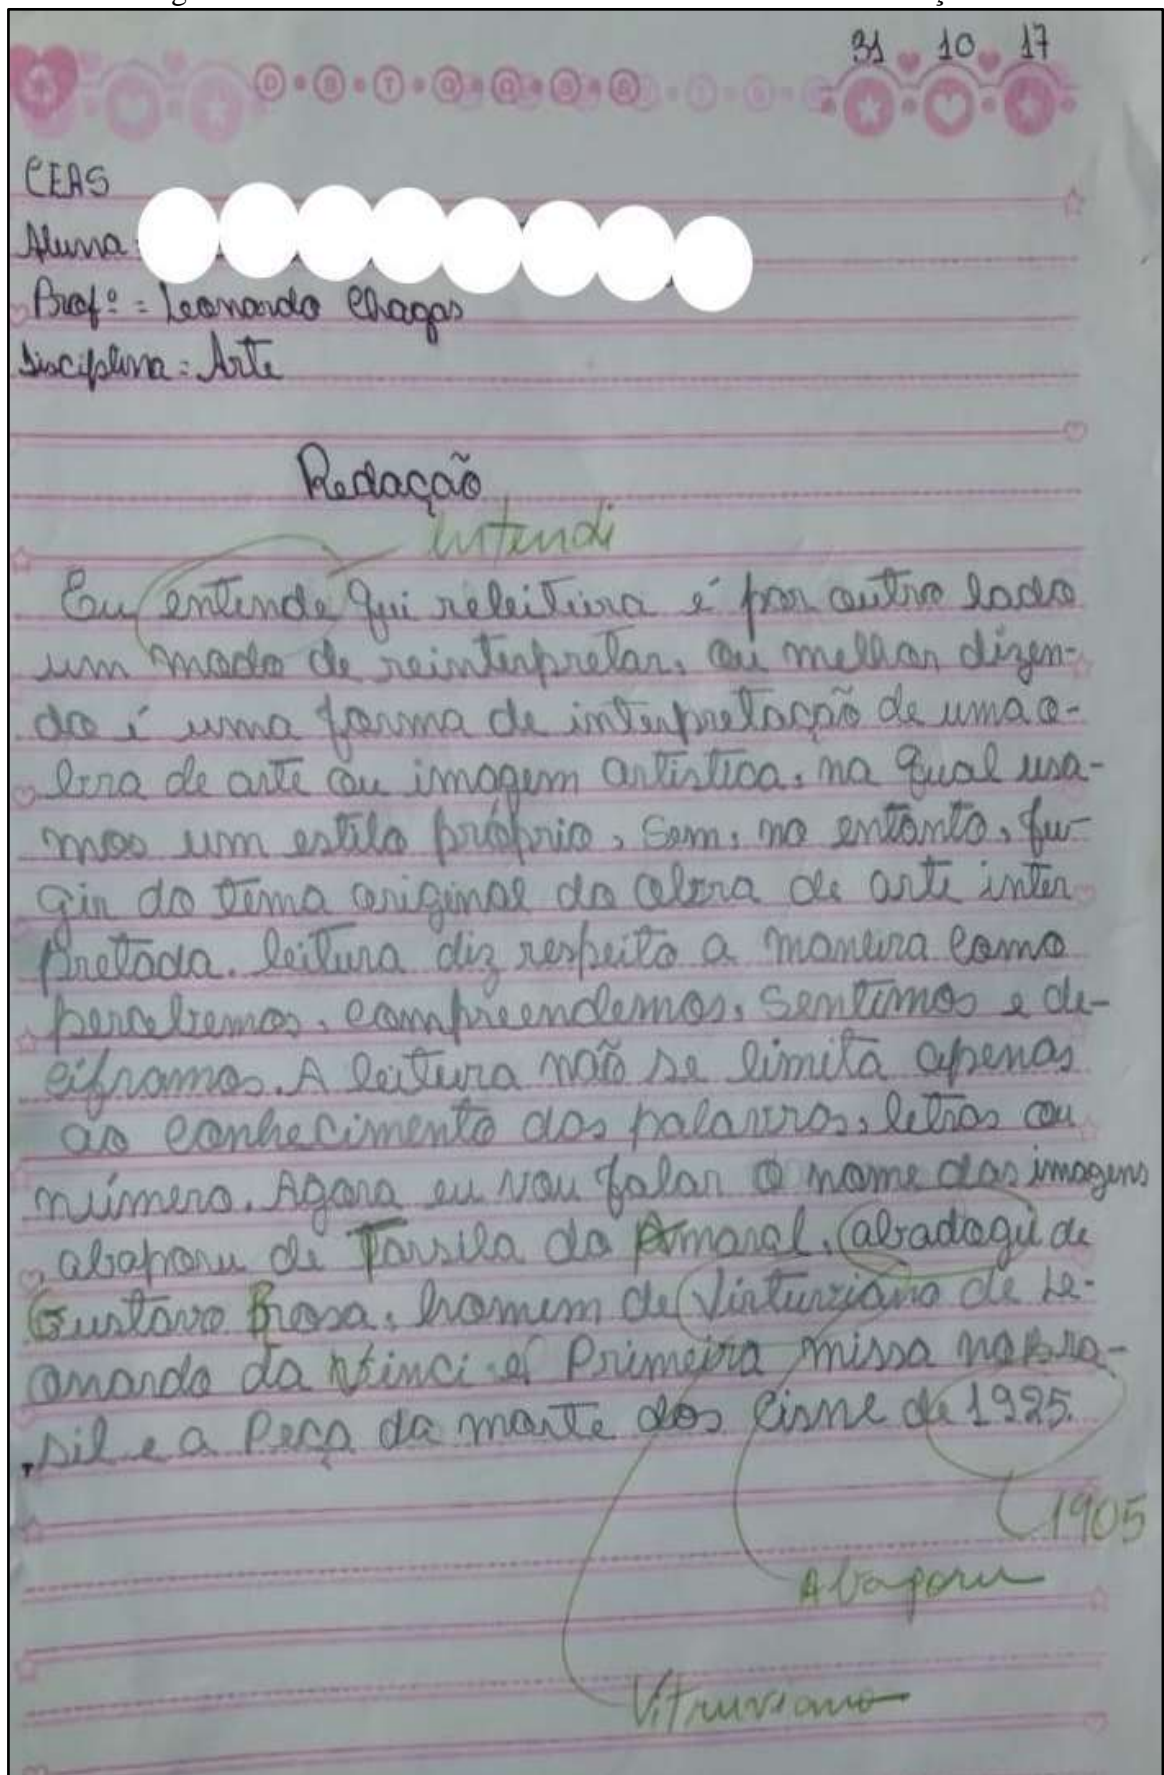 31 10 17
D S T Q Q S S
CEAS
Aluna:
Profº = Leonardo Chagas
Disciplina = Arte
Redação
entendi
Eu entende qui releitura é por outro lado
um modo de reinterpretar, ou melhor dizen-
do é uma forma de interpretação de uma o-
bra de arte ou imagem artistica, na qual usa-
mos um estilo próprio, sem, no entanto, fu-
gir do tema original da obra de arte inter
pretada. leitura diz respeito a maneira como
percebemos, compreendemos, sentimos e de-
ciframos. A leitura não se limita apenas
ao conhecimento das palavras, letras ou
número. Agora eu vou falar o nome das imagens
abaporu de Tarsila do Amaral, abadogui de
Gustavo Rosa, homem de Virturziano de Le-
onardo da Vinci e Primeira missa no Bra-
sil e a Peça da morte dos cisne de 1925.
1905
Abaporu
Vitruviano